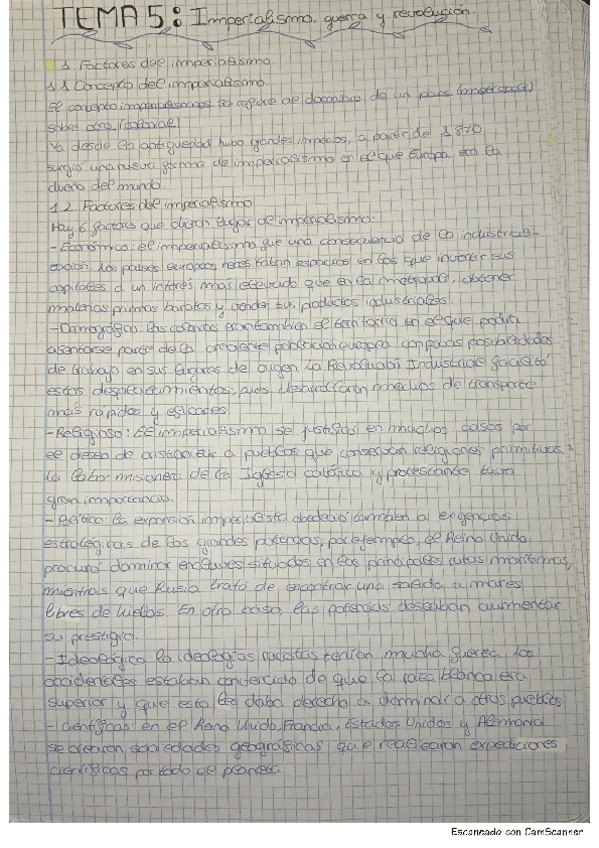 TEMA 5: Imperialismo, guerra y revolución.
1. Factores del imperialismo
1.1 Concepto del imperialismo.
El concepto imperialismo se refiere al dominio de un país (metrópoli)
sobre otro (colonia)
Ya desde la antigüedad hubo grandes imperios, a partir de 1870
surgió una nueva forma de imperialismo en el que Europa era la
dueña del mundo
1.2. Factores del imperialismo
Hay 6 factores que dieron lugar de imperialismo:
- Económico: el imperialismo fue una consecuencia de la industriali-
zación. Los países europeos necesitaban espacios en los que invertir sus
capitales a un interés más elevado que en la metrópoli, obtener
materias primas baratas y vender sus productos industriales.
- Demográfico: las colonias eran también el territorio en el que podía
asentarse parte de la creciente población europea con pocas posibilidades
de trabajo en sus lugares de origen. La Revolución Industrial facilitó
estos desplazamientos, pues desarrollaron medios de transporte
más rápidos y eficaces
- Religioso: El imperialismo se justificó en muchos casos por
el deseo de cristianizar a pueblos que conservan religiones primitivas.
La labor misionera de la Iglesia católica y protestante tuvo
gran importancia.
- Político: la expansión imperialista obedeció también a exigencias
estratégicas de las grandes potencias, por ejemplo, el Reino Unido
procuró dominar enclaves situados en las principales rutas marítimas,
mientras que Rusia trató de encontrar una salida a mares
libres de hielos. En otro caso, las potencias deseaban aumentar
su prestigio.
- Ideológico: la ideologías racistas tenían mucha fuerza. Los
occidentales estaban convencido de que la raza blanca era
superior y que esto les daba derecho a dominar a otros pueblos
- Científicas: en el Reino Unido, Francia, Estados Unidos y Alemania
se crearon sociedades geográficas que realizaron expediciones
científicas por todo el planeta.
Escaneado con CamScanner